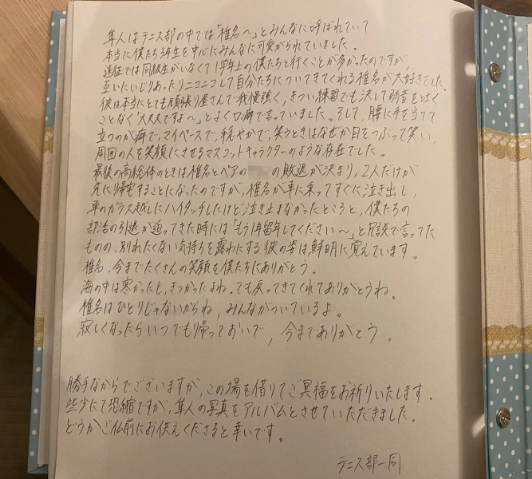 隼人はテニス部の中では「椎名〜」とみんなに呼ばれていて
本当に僕たち3年生を中心にみんなに可愛がられていました。
遠征では同級生がいなくて1学年上の僕たちと行くことが多かったのですが、
互いにいじりあったりニコニコして自分たちについてきてくれる椎名が大好きでした。
彼は本当にとても頑張り屋さんで我慢強く、きつい練習でも決して弱音をはく
ことなく「大丈夫ですよ〜」とよく口癖で言っていました。そして、腰に手を当てて
立つのが癖で、マイペースで、穏やかで、笑うときはなぜか目をつぶって笑い、
周囲の人を笑顔にさせるマスコットキャラクターのような存在でした。
最後の高総体のときは椎名とペアの の敗退が決まり、2人だけが
先に帰宅することになったのですが、椎名が車に乗ってすぐに泣き出し、
車のガラス越しにハイタッチしたけど泣き止まなかったところと、僕たちの
部活の引退が迫ってきた時には「もう1年留年してください〜」と冗談で言ってた
ものの、別れたくない気持ちを露わにする彼の姿は鮮明に覚えています。
椎名、今までたくさんの笑顔を僕たちにありがとう。
海の中は寒かったし、きつかったよね。でも戻ってきてくれてありがとうね。
椎名はひとりじゃないからね、みんながついているよ。
寂しくなったらいつでも帰っておいで、今までありがとう。
勝手ながらでございますが、この場を借りてご冥福をお祈りいたします。
些少にて恐縮ですが、隼人の写真をアルバムとさせていただきました。
どうかご仏前にお供えくださると幸いです。
テニス部一同